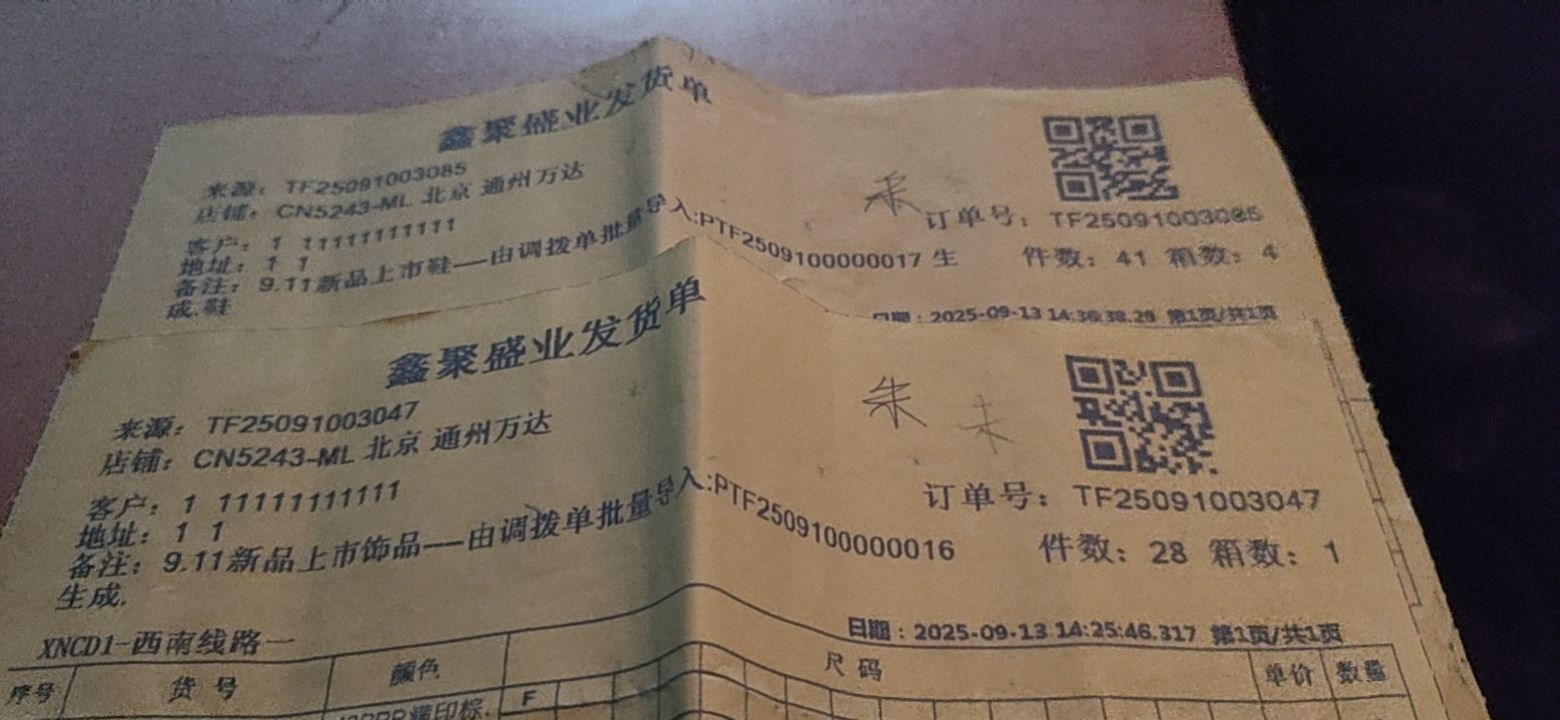 鑫聚盛业发货单
来源：TF25091003085
店铺：CN5243-ML 北京 通州万达
客户：1 11111111111
地址：1 1
订单号：TF25091003085
备注：9.11新品上市鞋——由调拨单批量导入:PTF2509100000017 生
件数：41 箱数：4
成.鞋
日期：2025-09-13 14:36:38.29 第1页/共1页
鑫聚盛业发货单
来源：TF25091003047
店铺：CN5243-ML 北京 通州万达
朱
客户：1 11111111111
地址：1 1
订单号：TF25091003047
备注：9.11新品上市饰品——由调拨单批量导入:PTF2509100000016
件数：28 箱数：1
生成.
XNCD1-西南线路一
日期：2025-09-13 14:25:46.317 第1页/共1页
序号 货号 颜色 尺码 单价 数量
F